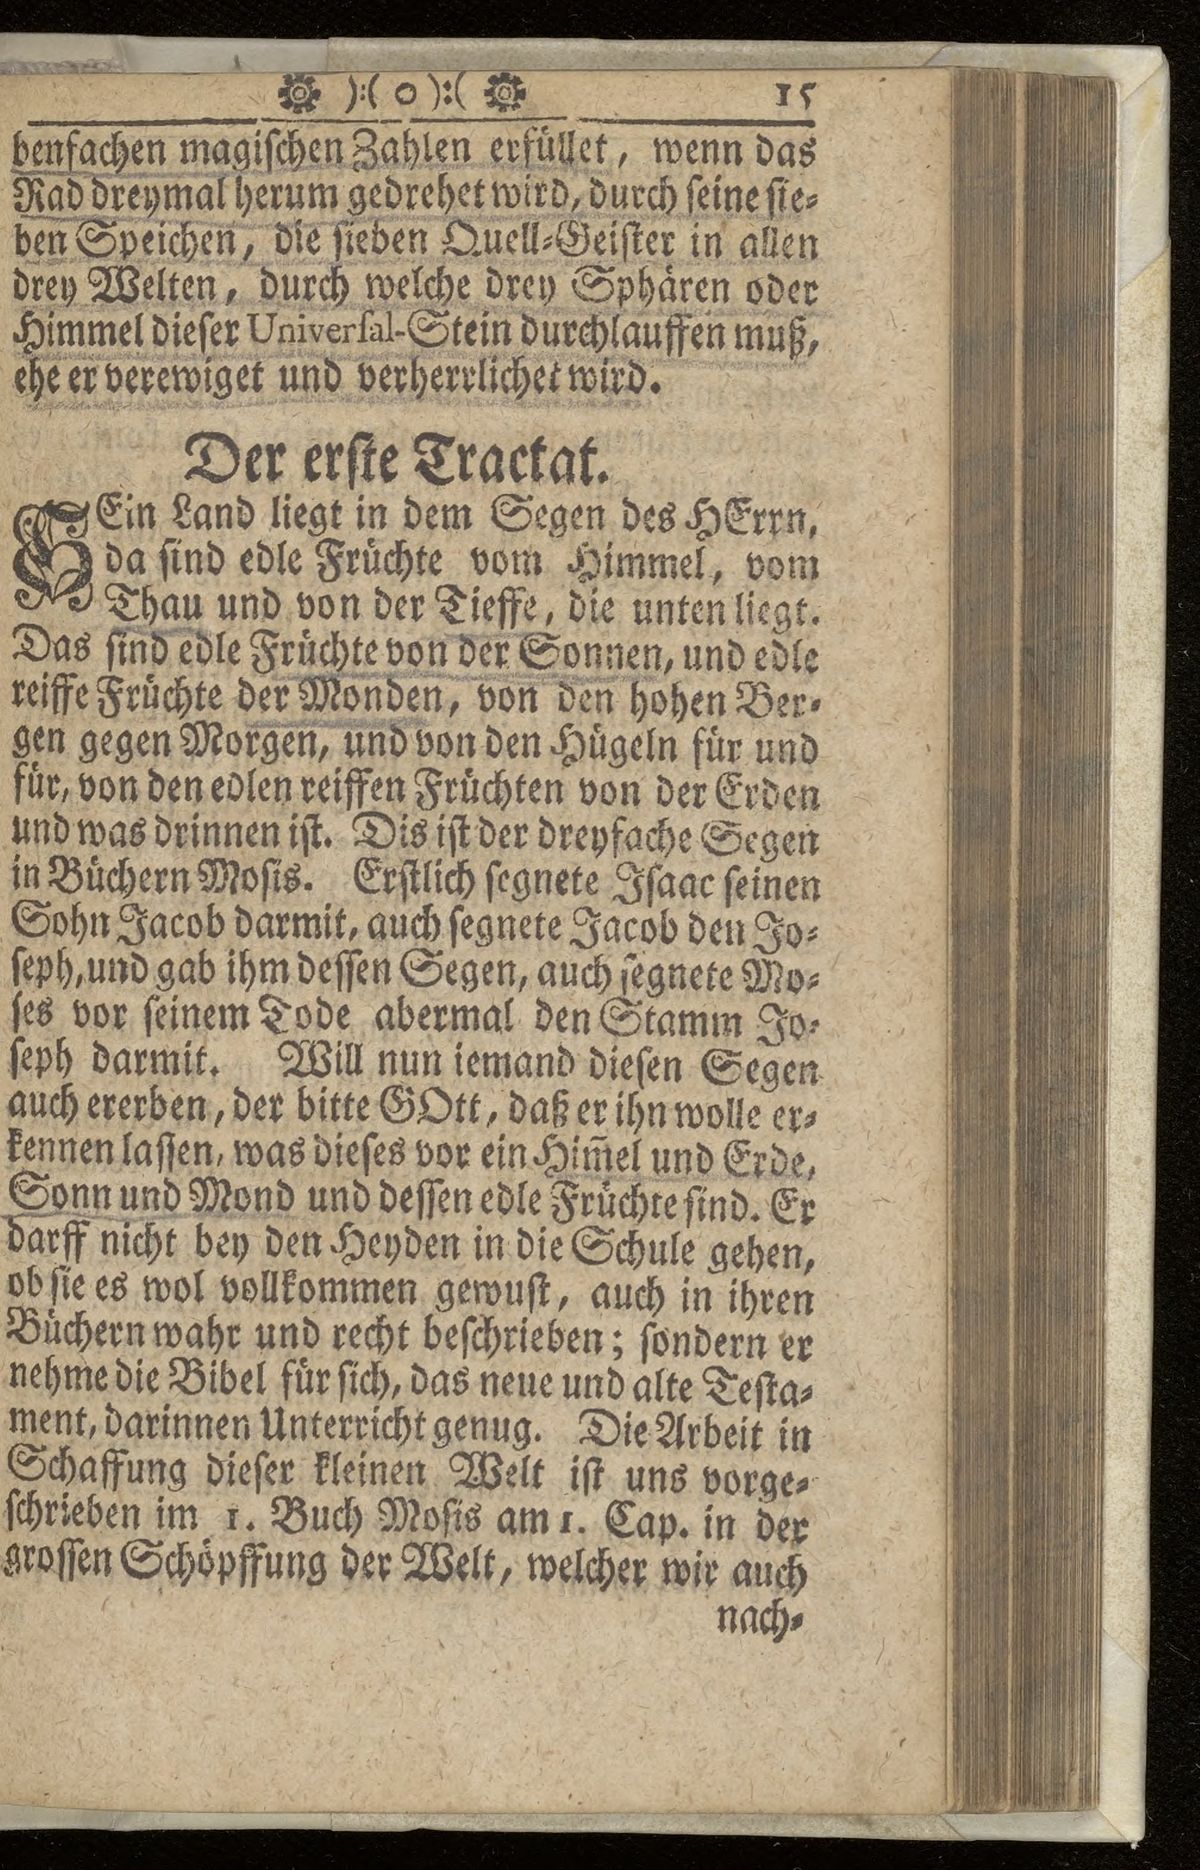 ):( o ):( 15
benfachen magischen Zahlen erfüllet, wenn das
Rad dreymal herum gedrehet wird, durch seine sie-
ben Speichen, die sieben Quell-Geister in allen
drey Welten, durch welche drey Sphären oder
Himmel dieser Universal-Stein durchlauffen muß,
ehe er verewiget und verherrlichet wird.
Der erste Tractat.
SEin Land liegt in dem Segen des HErrn,
da sind edle Früchte vom Himmel, vom
Thau und von der Tieffe, die unten liegt.
Das sind edle Früchte von der Sonnen, und edle
reiffe Früchte der Monden, von den hohen Ber-
gen gegen Morgen, und von den Hügeln für und
für, von den edlen reiffen Früchten von der Erden
und was drinnen ist. Dis ist der dreyfache Segen
in Büchern Mosis. Erstlich segnete Isaac seinen
Sohn Jacob darmit, auch segnete Jacob den Jo-
seph, und gab ihm dessen Segen, auch segnete Mo-
ses vor seinem Tode abermal den Stamm Jo-
seph darmit. Will nun iemand diesen Segen
auch ererben, der bitte GOtt, daß er ihn wolle er-
kennen lassen, was dieses vor ein Him̃el und Erde,
Sonn und Mond und dessen edle Früchte sind. Er
darff nicht bey den Heyden in die Schule gehen,
ob sie es wol vollkommen gewust, auch in ihren
Büchern wahr und recht beschrieben; sondern er
nehme die Bibel für sich, das neue und alte Testa-
ment, darinnen Unterricht genug. Die Arbeit in
Schaffung dieser kleinen Welt ist uns vorge-
schrieben im 1. Buch Mosis am 1. Cap. in der
grossen Schöpffung der Welt, welcher wir auch
nach-